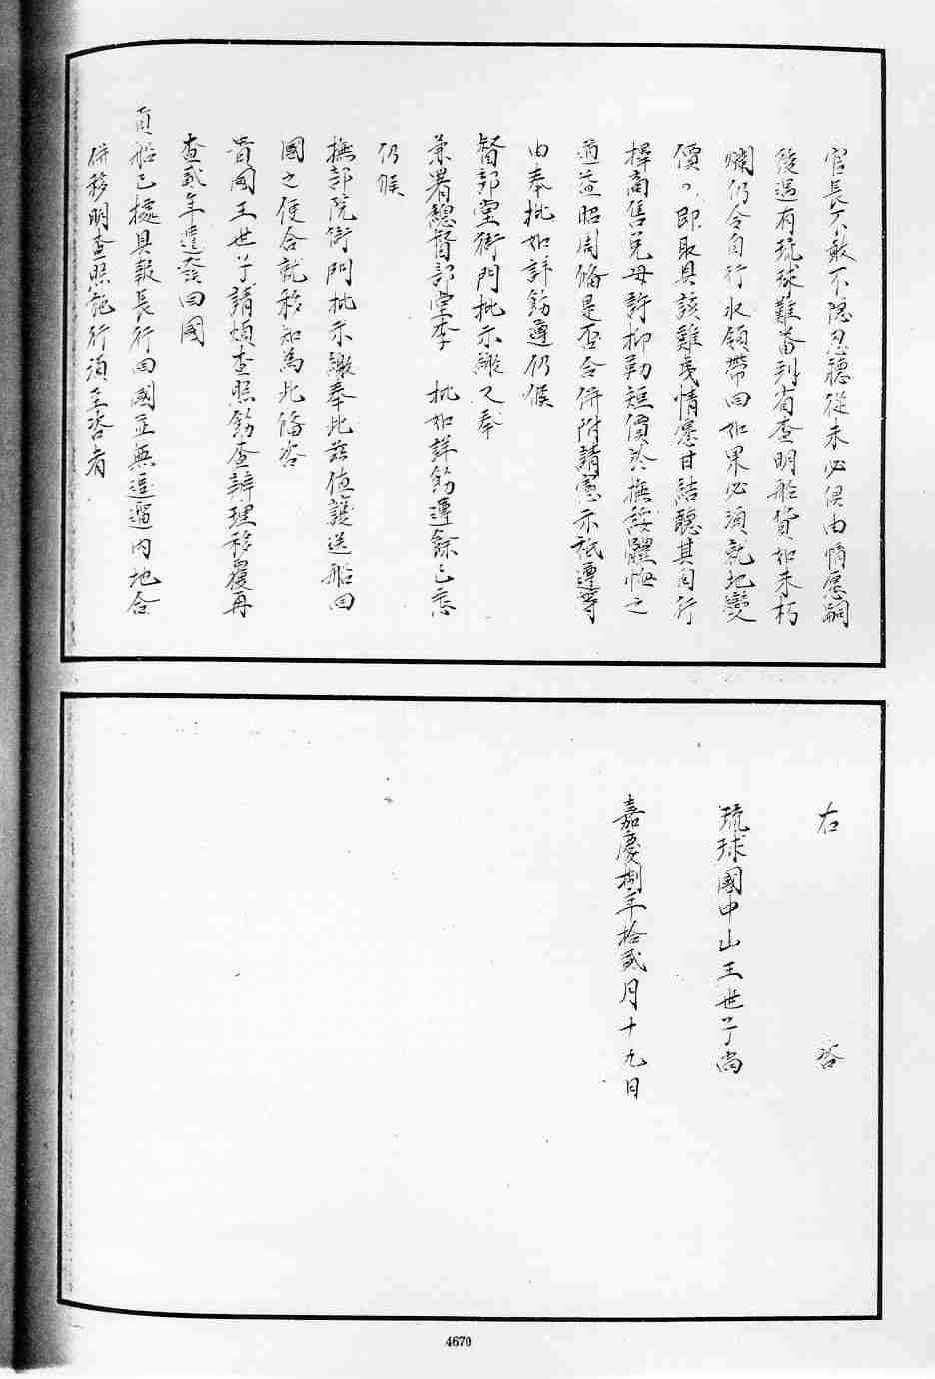 官長不敢不隱忍聽從未必俱由情愿嗣
後遇有琉球難番到省查明船貨如未朽
爛仍令自行收領帶回如果必須就地變
價即取具該難夷情愿甘結聽其自行
擇商售兌毋許抑勒短價於撫綏體恤之
道益昭周偹是否合併附請憲示祗遵等
由奉批如詳飭遵仍候
督部堂衙門批示繳又奉
兼署總督部堂李 批如詳飭遵餘已悉
仍候
撫部院衙門批示繳奉此茲值護送船回
國之便合就移知為此偹咨
貴國王世子請煩查照飭查辦理移覆再
查貳年遣發回國
貢船已據具報長行回國並無逗遛內地合
併移明查照施行須至咨者
右 咨
琉球國中山王世子尚
嘉慶捌年拾貳月十九日
4670